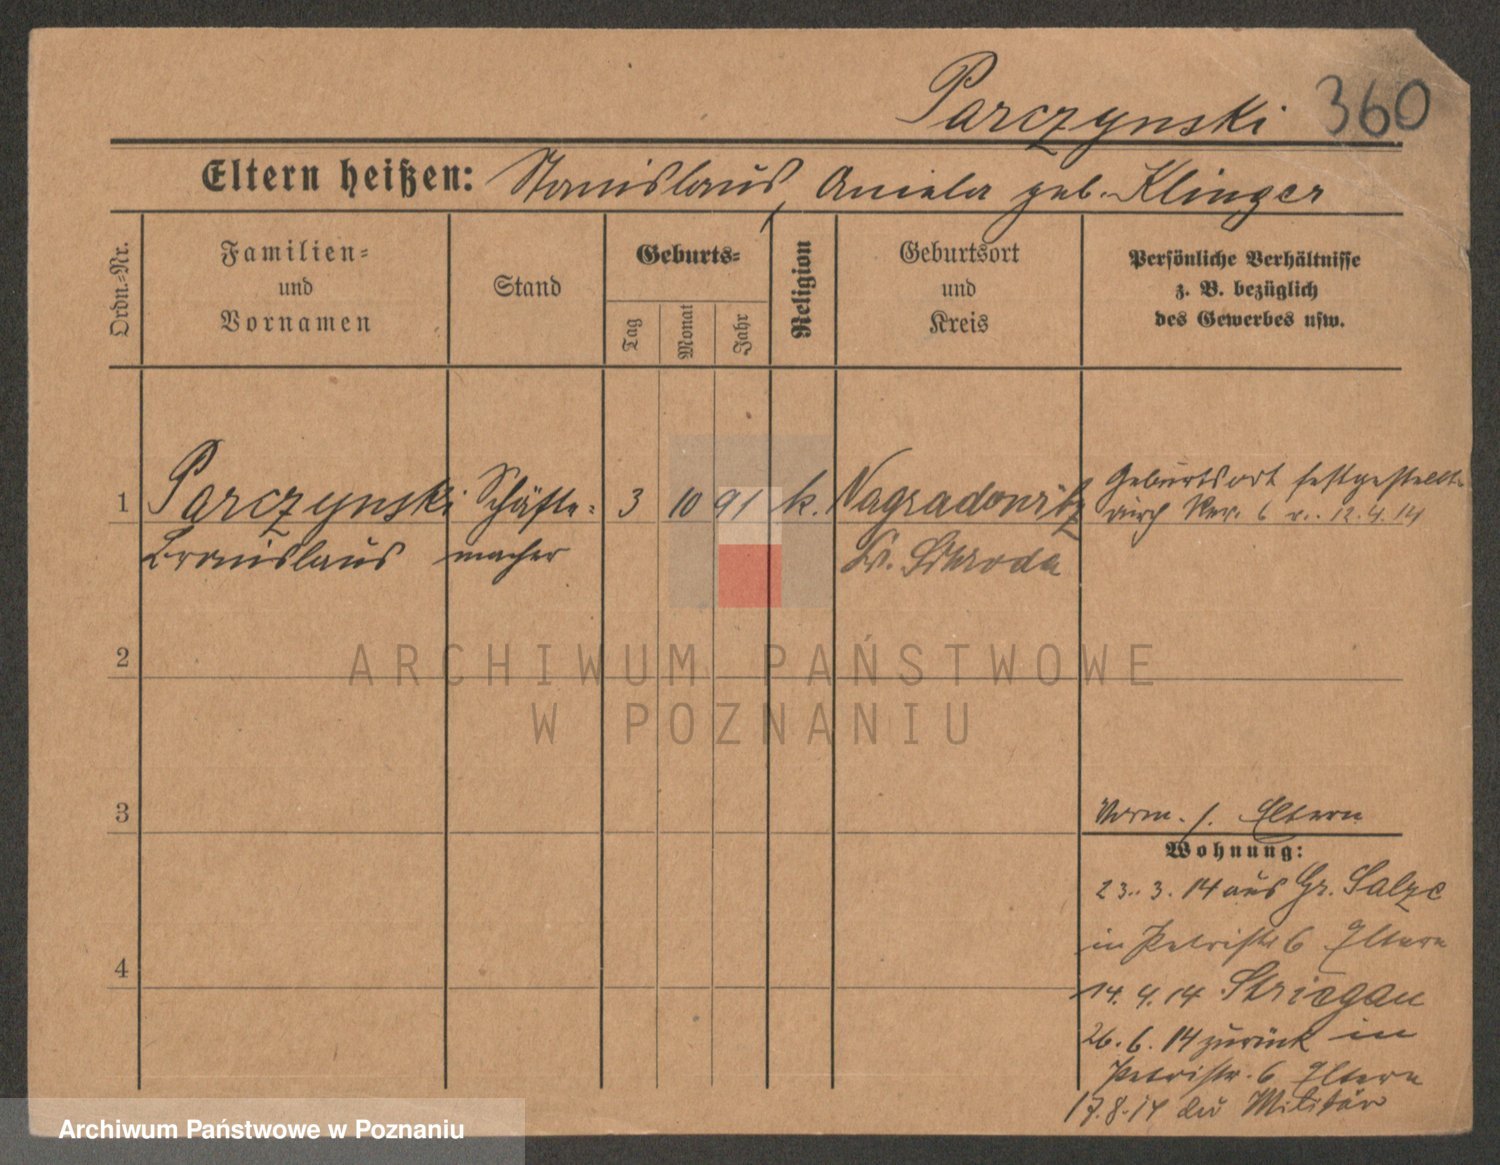 Parczynski 360
Eltern heißen: Stanislaus, Aniela geb. Klinger
Ordn.-Nr.
Familien- und Vornamen
Stand
Geburts-
Tag
Monat
Jahr
Religion
Geburtsort und Kreis
Persönliche Verhältnisse
z. B. bezüglich
des Gewerbes usw.
1 Parczynski Schäfte- 3 10 91 k. Nagradowitz Geburtsort festgestellt
Bronislaus macher Kr. Schroda durch 6 12.4.14
2
ARCHIWUM PAŃSTWOWE
W POZNANIU
3
Verm. s. Eltern
Wohnung:
23.3.14 aus Gr. Salze
in Petristr 6 Eltern
4
14.4.14 Striegau
26.6.14 zurück in
Petristr. 6 Eltern
17.8.14 Militär
Archiwum Państwowe w Poznaniu